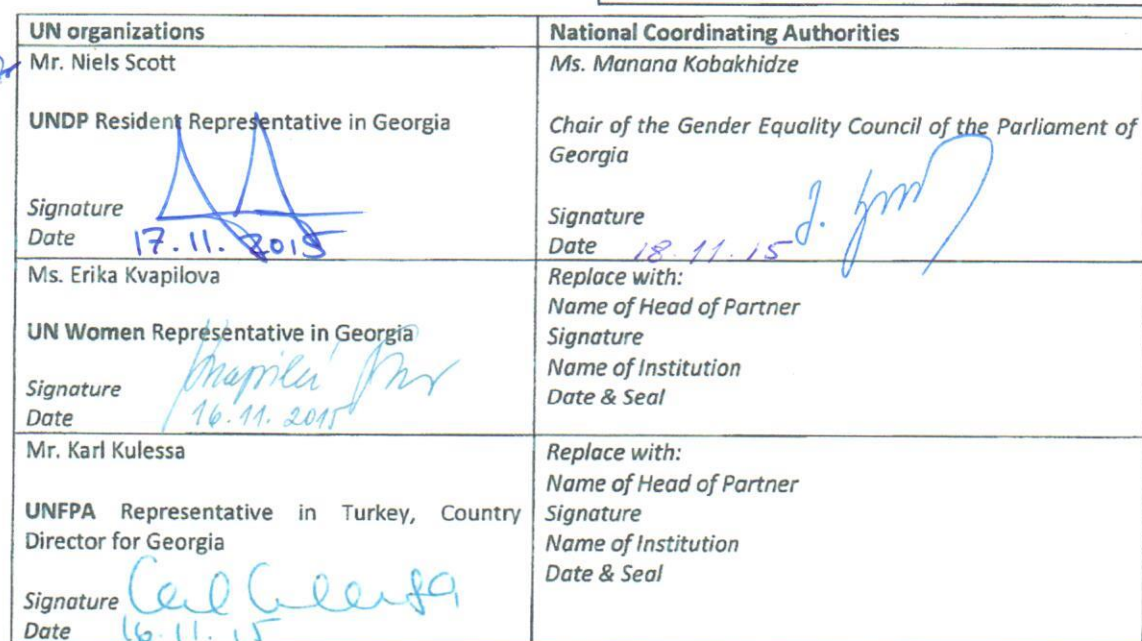 UN organizations
National Coordinating Authorities
Mr. Niels Scott
UNDP Resident Representative in Georgia
Signature
Date 17.11.2015
Ms. Manana Kobakhidze
Chair of the Gender Equality Council of the Parliament of
Georgia
Signature
Date 18.11.15
Ms. Erika Kvapilova
UN Women Representative in Georgia
Signature
Date 16.11.2015
Replace with:
Name of Head of Partner
Signature
Name of Institution
Date & Seal
Mr. Karl Kulessa
UNFPA Representative in Turkey, Country
Director for Georgia
Signature
Date 16.11.15
Replace with:
Name of Head of Partner
Signature
Name of Institution
Date & Seal